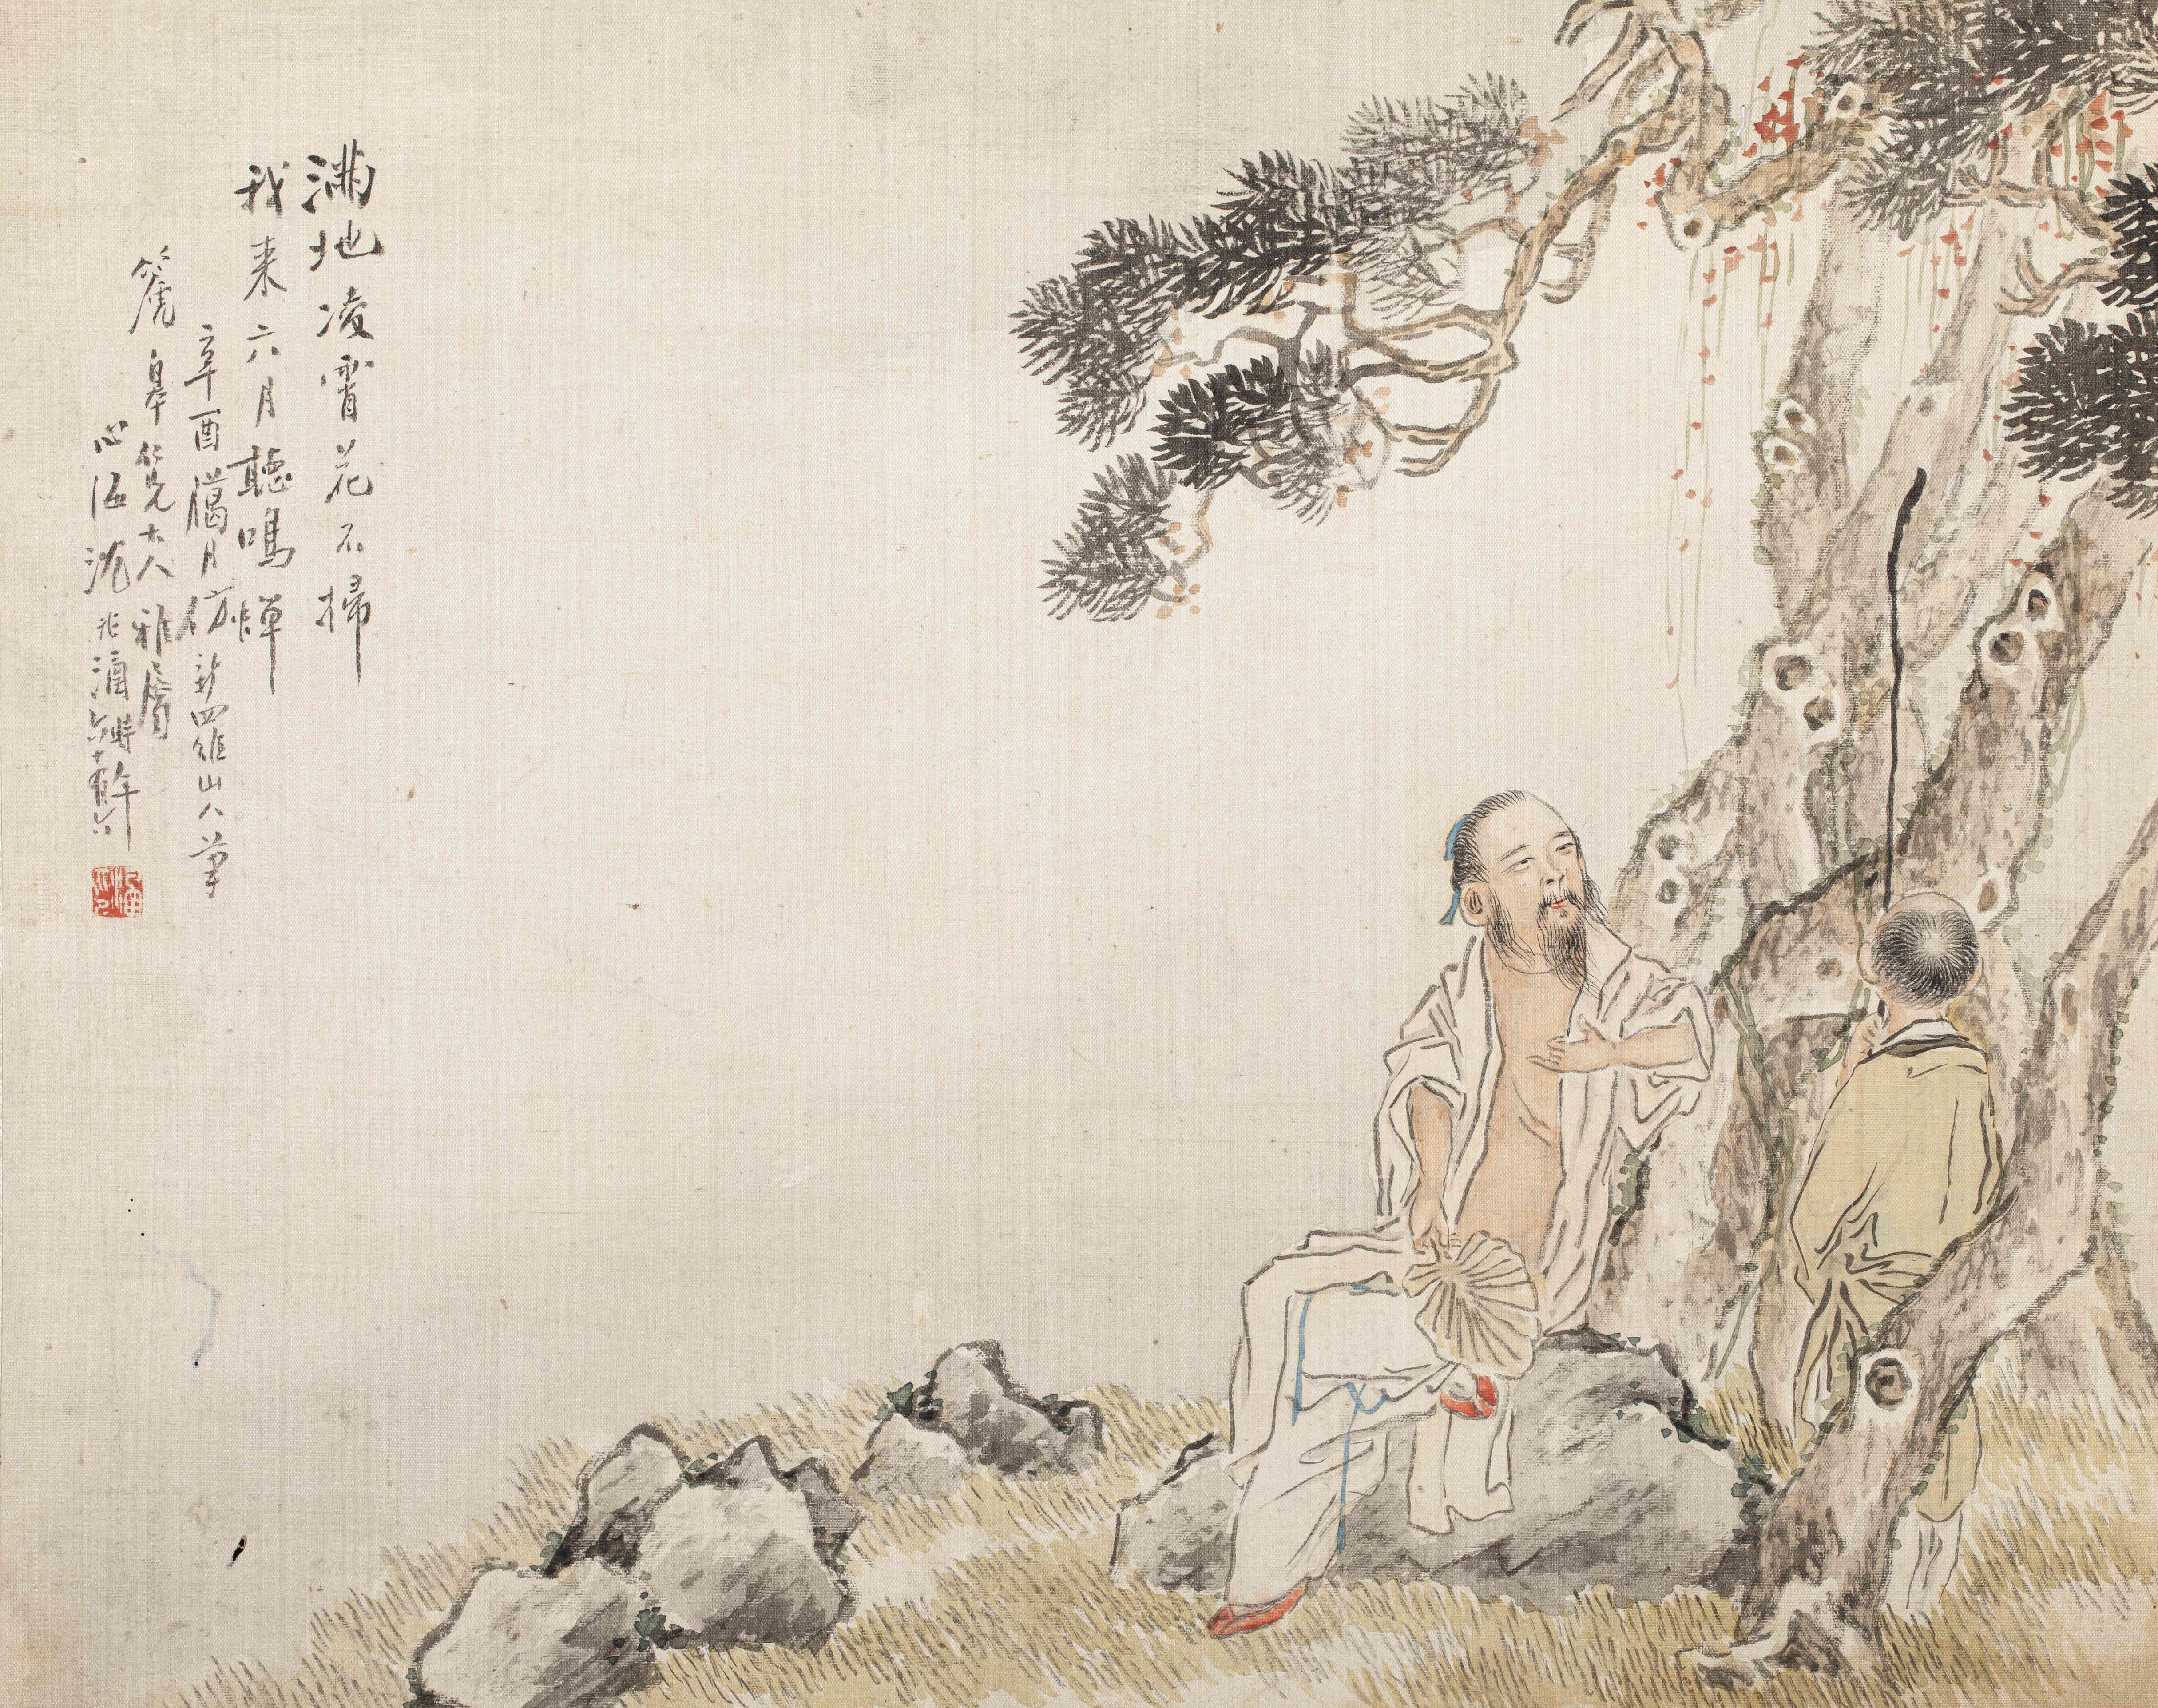 滿地凌霄花不掃
我來六月聽鳴蟬
辛酉臘月仿新羅山人筆
篪皋仁兄大人雅屬
心海沈兆涵時年六十有六